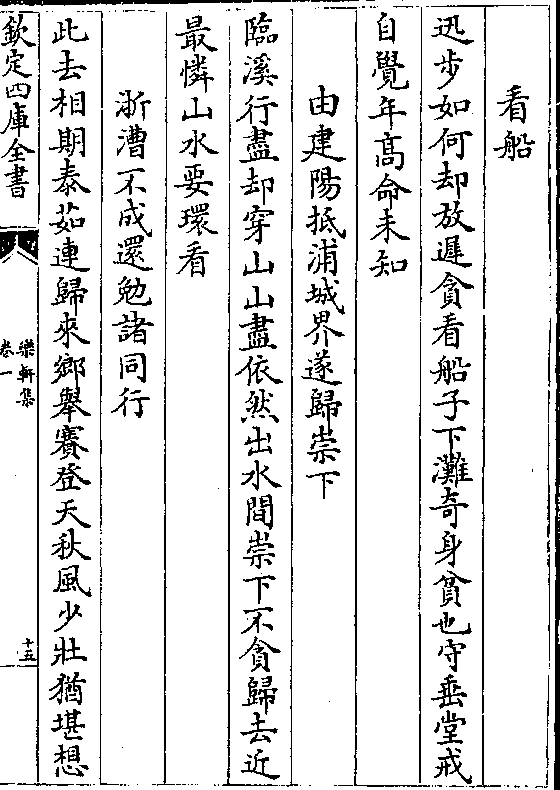 看船
迅步如何却放遲貪看船子下灘奇身貧也守垂堂戒
自覺年髙命未知
由建陽抵浦城界遂歸崇下
臨溪行盡却穿山山盡依然出水間崇下不貪歸去近
最憐山水要環看
浙漕不成還勉諸同行
此去相期泰茹連歸來鄉舉賽登天秋風少壯猶堪想
欽定四庫全書
樂軒集
卷一
十五